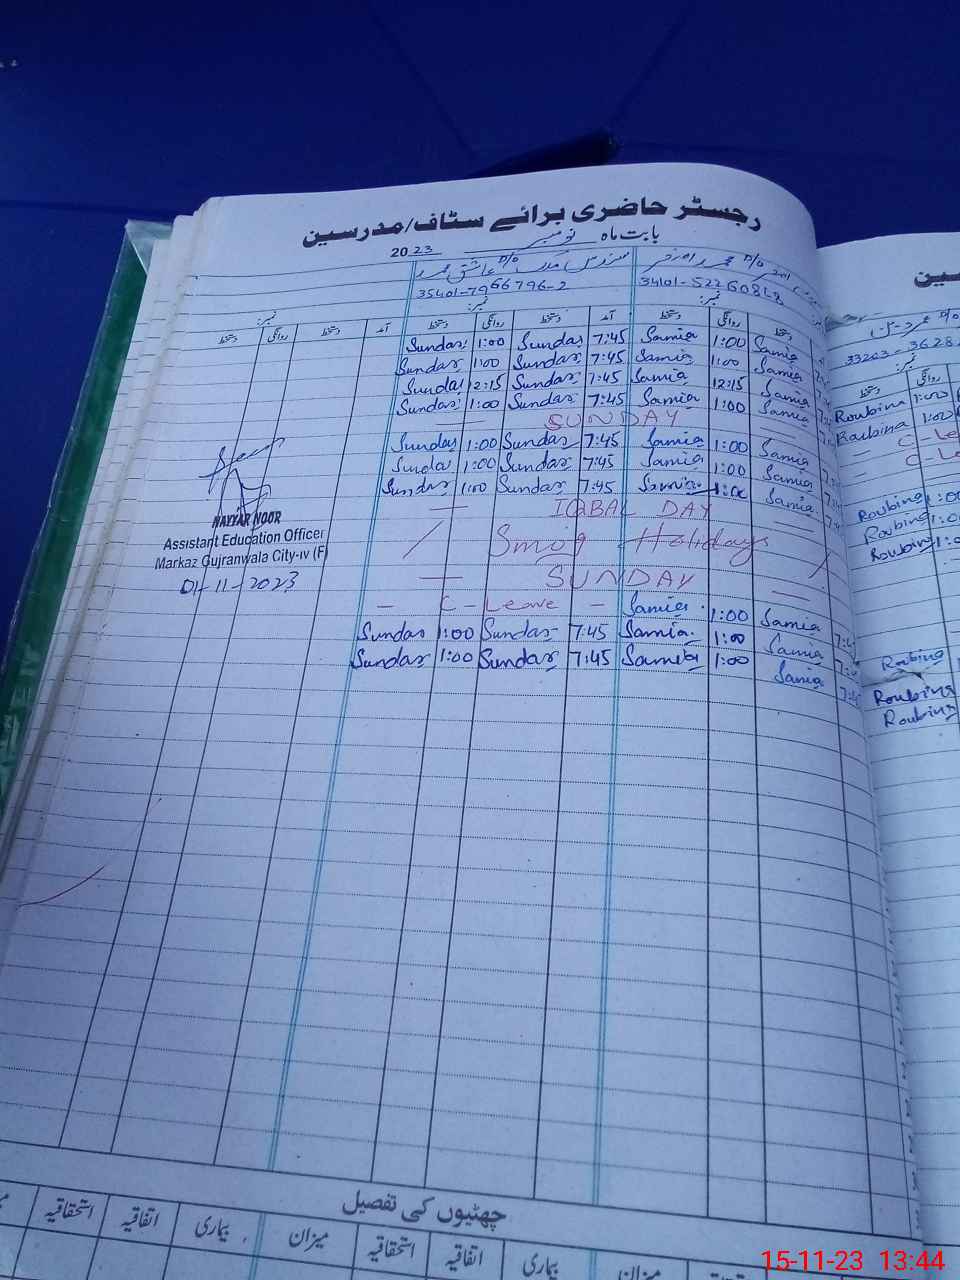 رجسٹر حاضری برائے سٹاف/مدرسین
بابت ماہ نومبر 2023
35401-7966796-2
34101-5226081-8
نمبر: نمبر: نمبر:
دستخط روانگی دستخط آمد دستخط روانگی دستخط آمد دستخط روانگی دستخط
Sundas 1:00 Sundas 7:45 Samia 1:00 Samia
Sundas 1:00 Sundas 7:45 Samia 1:00 Samia
Sundas 12:15 Sundas 7:45 Samia 12:15 Samia
Sundas 1:00 Sundas 7:45 Samia 1:00 Samia
SUNDAY
Sundas 1:00 Sundas 7:45 Samia 1:00 Samia
Sundas 1:00 Sundas 7:45 Samia 1:00 Samia
Sundas 1:00 Sundas 7:45 Samia 1:00 Samia
IQBAL DAY
Smog Holidays
SUNDAY
- C-Leave - Samia 1:00 Samia 7:45
Sundas 1:00 Sundas 7:45 Samia 1:00 Samia
Sundas 1:00 Sundas 7:45 Samia 1:00 Samia 7:45
NAYYAR NOOR
Assistant Education Officer
Markaz Gujranwala City-IV (F)
01-11-2023
چھٹیوں کی تفصیل
استحقاقیہ اتفاقیہ بیماری میزان استحقاقیہ اتفاقیہ بیماری میزان
نمبر:
دستخط روانگی
Roubina 1:00
Roubina 1:00
C-Le
Roubina 1:00
Roubina 1:0
Roubina 1:0
Roubina
Roubina
Roubina
15-11-23 13:44